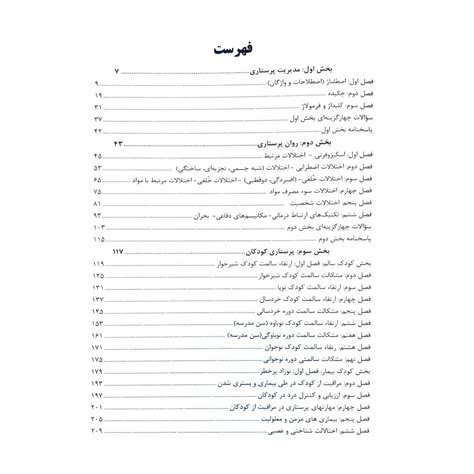 فهرست
بخش اول: مدیریت پرستاری ۷
فصل اول: اصطلناژ (اصطلاحات و واژگان) ۹
فصل دوم: چکیده ۱۹
فصل سوم: کلیداژ و فرمولاژ ۳۱
سؤالات چهارگزینه‌ای بخش اول ۳۷
پاسخنامه بخش اول ۴۲
بخش دوم: روان پرستاری ۴۳
فصل اول: اسکیزوفرنی - اختلالات مرتبط ۴۵
فصل دوم: اختلالات اضطرابی - اختلالات (شبه جسمی، تجزیه‌ای، ساختگی) ۵۳
فصل سوم: اختلالات خُلقی-(افسردگی، دوقطبی) - اختلالات خُلقی-اختلالات مرتبط با مواد ۶۵
فصل چهارم: اختلالات سوء مصرف مواد ۷۵
فصل پنجم: اختلالات شخصیت ۸۱
فصل ششم: تکنیک‌های ارتباط درمانی- مکانیسم‌های دفاعی- بحران ۹۳
سؤالات چهارگزینه‌ای بخش دوم ۱۰۳
پاسخنامه بخش دوم ۱۱۵
بخش سوم: پرستاری کودکان ۱۱۷
بخش کودک سالم: فصل اول: ارتقاء سالمت کودک شیرخوار ۱۱۹
فصل دوم: مشکالت سالمت کودک شیرخوار ۱۲۵
فصل سوم: ارتقاء سالمت کودک نوپا ۱۳۱
فصل چهارم: ارتقاء سالمت کودک خردسال ۱۳۷
فصل پنجم: مشکالت سالمت دوره خردسالی ۱۴۵
فصل ششم: ارتقاء سالمت کودک نوباوه (سن مدرسه) ۱۵۳
فصل هفتم: مشکالت سالمت دوره نوباوگی(سن مدرسه) ۱۶۱
فصل هشتم: رتقاء سالمت کودک نوجوان ۱۷۱
فصل نهم: مشکالت سالمتی دوره نوجوانی ۱۷۵
بخش کودک بیمار: فصل اول: نوزاد پرخطر ۱۷۹
فصل دوم: مراقبت از کودک در طی بیماری و بستری شدن ۱۹۳
فصل سوم: ارزیابی و کنترل درد در کودکان ۱۹۷
فصل چهارم: مهارتهای پرستاری در مراقبت از کودکان ۲۰۱
فصل پنجم: بیماری های مزمن و معلولیت ۲۰۵
فصل ششم: اختالالت شناختی و عصبی ۲۰۹